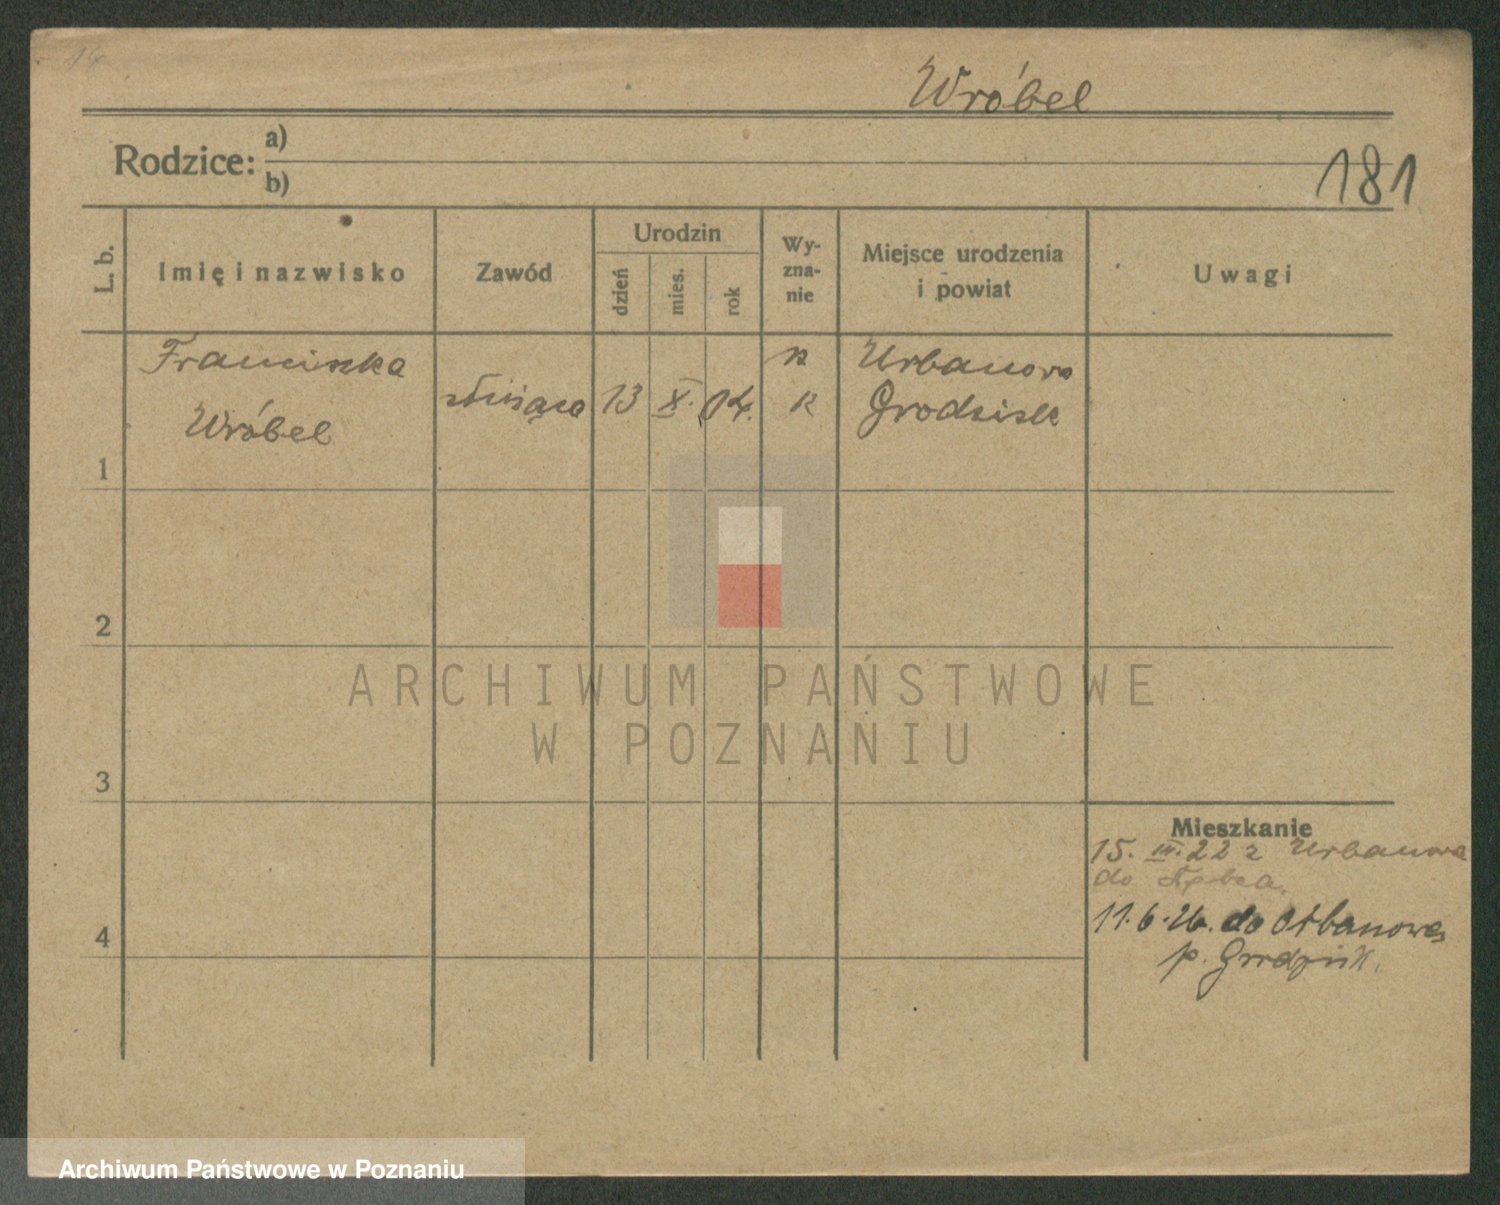 Wróbel
Rodzice:
a)
b)
181
L. b.
Imię i nazwisko
Zawód
Urodzin
dzień
mies.
rok
Wy-
zna-
nie
Miejsce urodzenia
i powiat
Uwagi
Franciszka
Wróbel
służąca
13
X.
04.
R
K
Urbanowo
Grodzisk
1
2
3
4
ARCHIWUM PAŃSTWOWE
W POZNANIU
Mieszkanie
15. III. 22 z Urbanowa
do
11. 6. 26. do Urbanowa
p. Grodzisk.
Archiwum Państwowe w Poznaniu